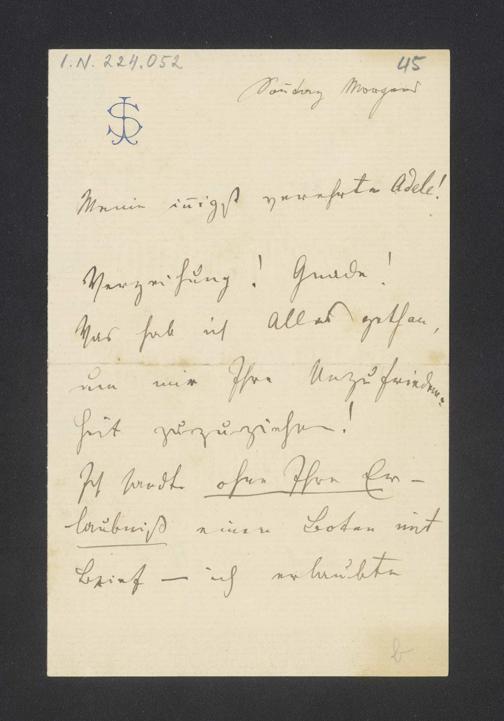 I.N. 224.052
45
Sonntag Morgens
JS
Meine innigst verehrte Adele!
Verzeihung! Gnade!
Was hab ich Alles gethan,
um mir Ihre Unzufrieden=
heit zuzuziehen!
Ich sandte ohne Ihre Er-
laubniß einen Boten mit
Brief — ich erlaubte
b